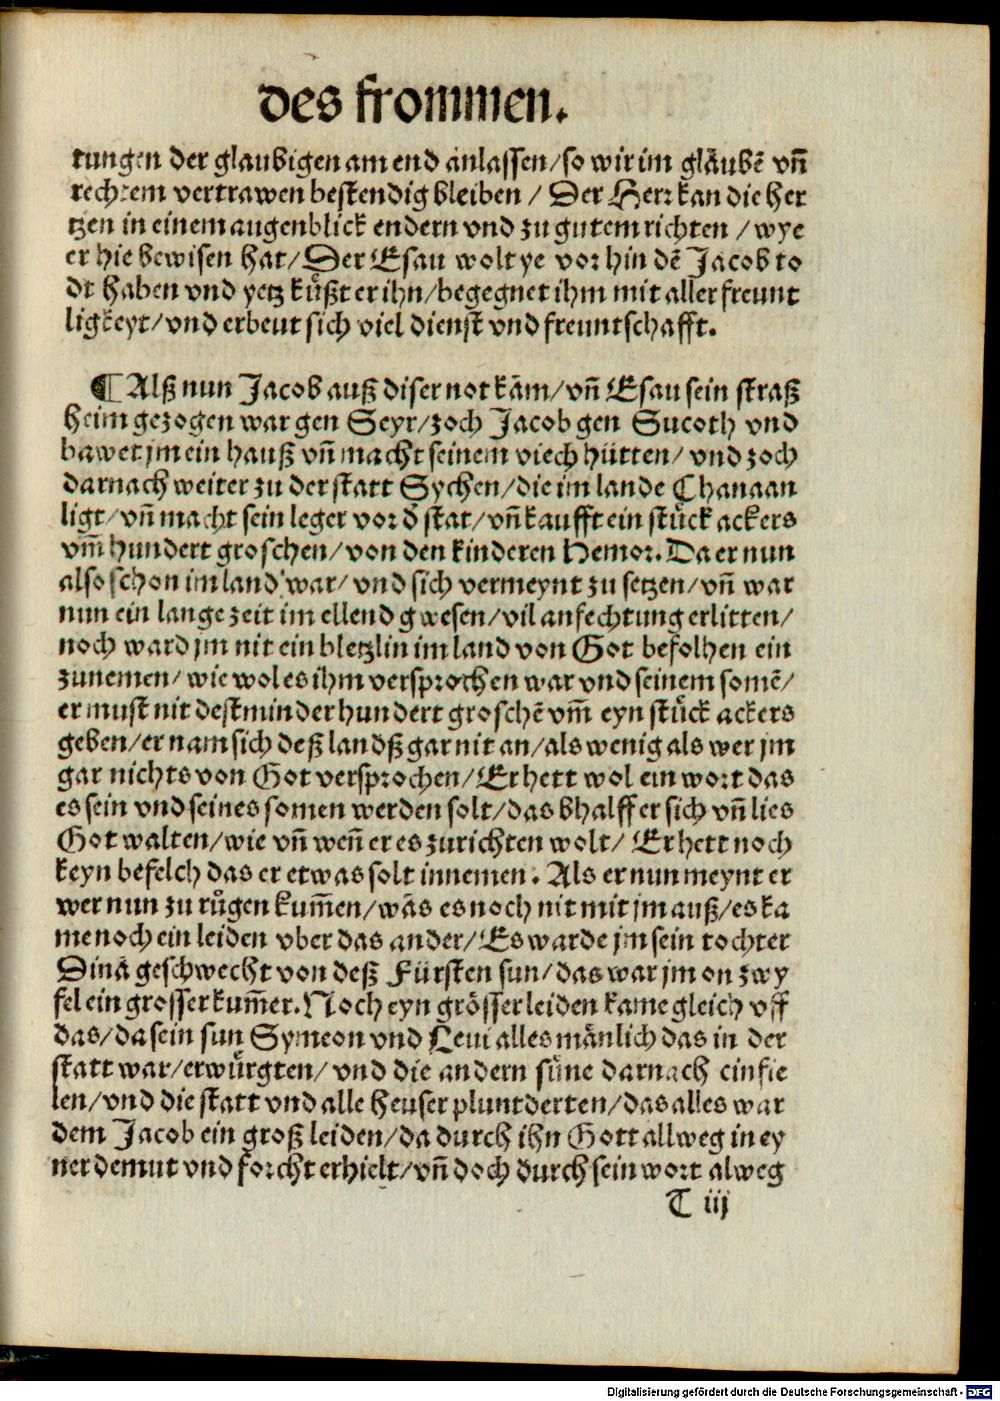 des frommen.
tungen der glaubigen am end anlassen/so wir im glaubē vñ
rechtem vertrawen bestendig bleiben / Der Herr kan die her
tzen in einem augenblick endern vnd zu gutem richten /wye
er hie bewisen hat/Der Esau wolt ye vor hin dē Jacob to
dt haben vnd yetz kuͤßt er ihn/begegnet ihm mit aller freunt
ligkeyt/vnd erbeut sich viel dienst vnd freuntschafft.
¶Alß nun Jacob auß diser not kām/vñ Esau sein straß
heim gezogen war gen Seyr/zoch Jacob gen Sucoth vnd
bawet jm ein hauß vñ macht seinem viech hütten/ vnd zoch
darnach weiter zu der statt Sychen/die im lande Chanaan
ligt/vñ macht sein leger vor d̄ stat/vñ kaufft ein stuͤck ackers
vm̄ hundert groschen/von den kinderen Hemor. Da er nun
also schon im land war/ vnd sich vermeynt zu setzen/vñ war
nun ein lange zeit im ellend gwesen/vil anfechtung erlitten/
noch ward jm nit ein bletzlin im land von Got befolhen ein
zunemen/wie wol es ihm versprochen war vnd seinem somē/
er must nit destminder hundert groschē vm̄ eyn stuͤck ackers
geben/er nam sich deß landß gar nit an/als wenig als wer jm
gar nichts von Got versprochen/Er hett wol ein wort das
es sein vnd seines somen werden solt/das bhalff er sich vñ lies
Got walten/wie vñ weñ er es zurichten wolt/ Er hett noch
keyn befelch das er etwas solt innemen. Als er nun meynt er
wer nun zu ruͤgen kum̄en/wās es noch nit mit jm auß/es ka
me noch ein leiden vber das ander/Es warde jm sein tochter
Dinā geschwecht von deß Fürsten sun/das war jm on zwy
fel ein grosser kum̄er. Noch eyn grösser leiden kame gleich vff
das/da sein sun Symeon vnd Leui alles mänlich das in der
statt war/erwuͤrgten/ vnd die andern süne darnach einfie
len/vnd die statt vnd alle heuser pluntderten/das alles war
dem Jacob ein groß leiden/da durch ihn Gott allweg in ey
ner demut vnd forcht erhielt/vñ doch durch sein wort alweg
T iij
Digitalisierung gefördert durch die Deutsche Forschungsgemeinschaft - DFG